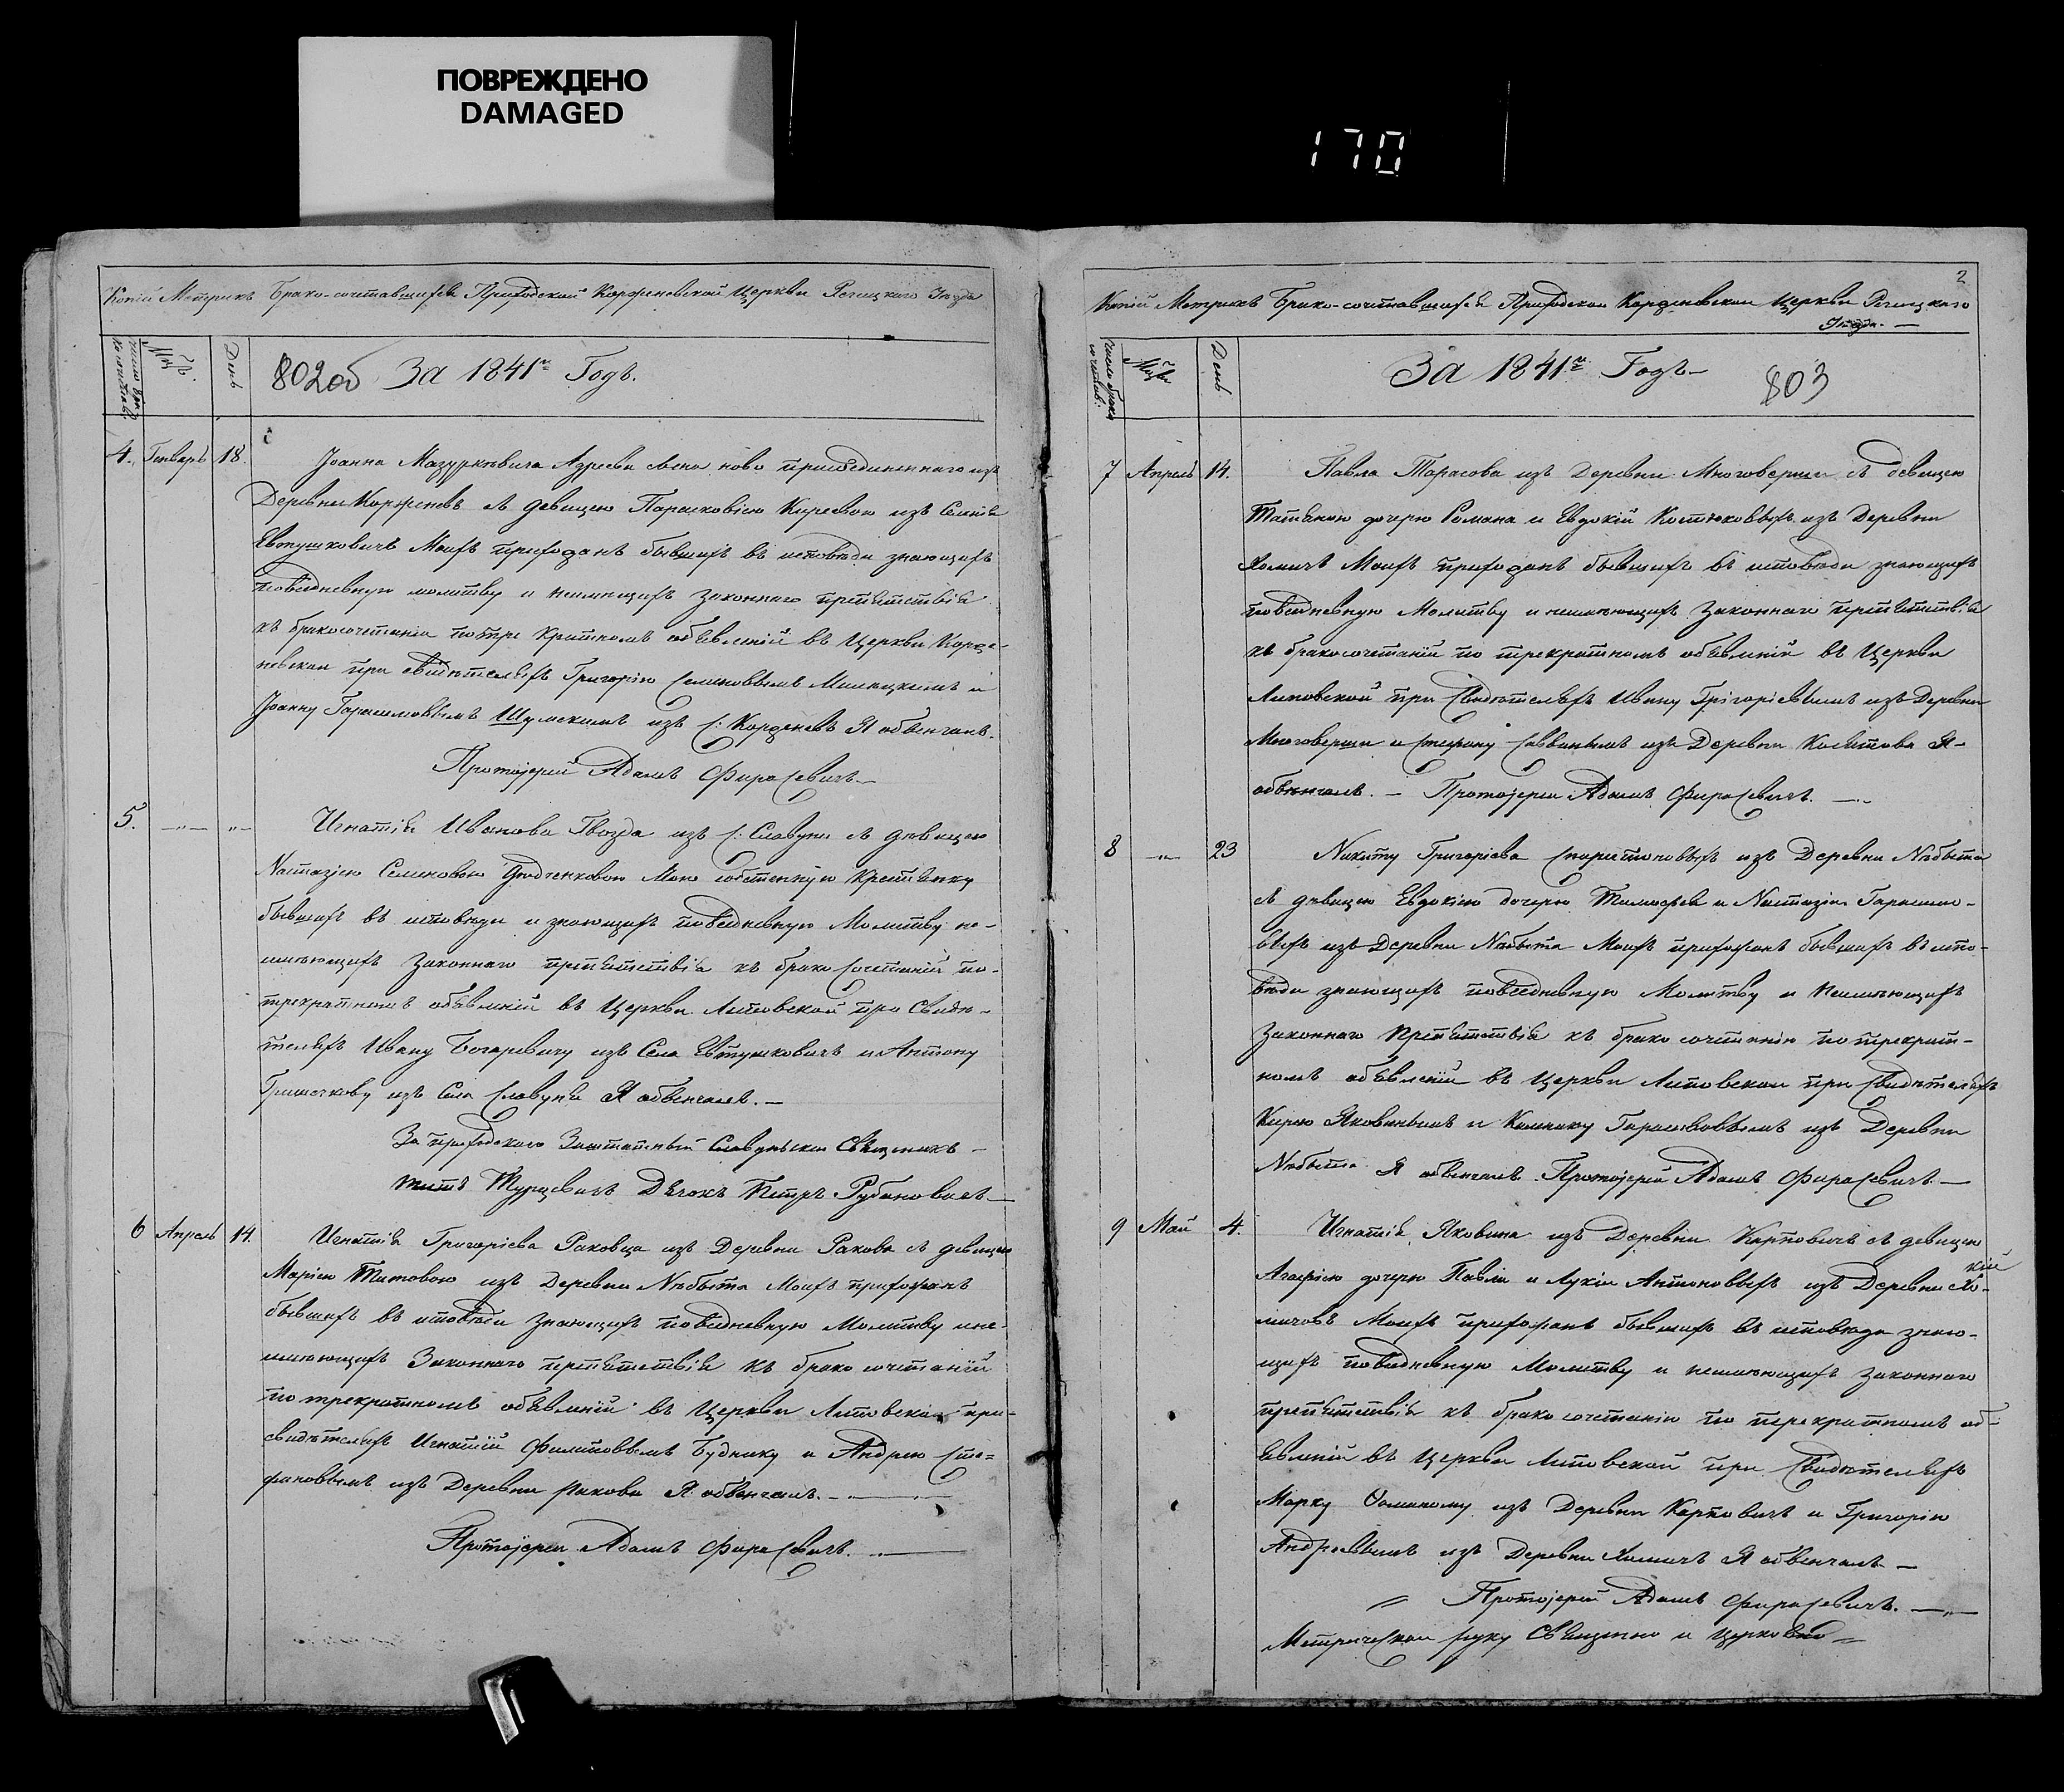 ПОВРЕЖДЕНО
DAMAGED
170
Копій Метрикъ Брако-сочетавшихся Приходской Корженевской Церкви Речицкаго Уезда
День
802об За 1841й Годъ.
4. Генваръ 18.
Іоанна Мазуркевича сына ново присоединеннаго изъ
Деревни Корженевъ съ девицею Парасковіею Киреевою изъ Селенія
Евтушковичъ Моихъ прихожанъ бывшихъ въ исповѣди знающихъ
повседневную молитву и неимущихъ законнаго препятствія
къ бракосочетанію по тре кратномъ объявленій въ Церкви Корже-
невской при свидѣтеляхъ Григорію Семеновымъ и
Іоанну Гарасимовымъ Шумскимъ изъ с: Корженевъ Я обвенчалъ.
Протоіерей Адамъ Фирасевичъ
5. —„— „
Игнатія Иванова Гвозда изъ с: Славуни съ дѣвицею
Настазіею Семеновою Мою собстенную Крестьянку
бывшихъ въ исповѣди и знающихъ повседневную Молитву не-
имѣющихъ Законнаго препятствія къ брако сочетаній по-
трекратномъ объявленій въ Церкви Липовской при Свидѣ-
теляхъ Ивану Богаревичу изъ Села Евтушковичъ и Антону
Гришечкову изъ Села Славуня Я обвенчалъ. —
За приходскаго Заштатный Свящ нникъ —
Дьячокъ Петръ Рубановичъ —
6 Апрель 14.
Игнатія Григоріева Раковца изъ Деревни Ракова съ девицею
Маріею Титовою изъ Деревни Небыта Моихъ прихожанъ
бывшихъ въ исповѣди знающихъ повседневную Молитву и не-
имѣющихъ Законнаго препятствія къ брако сочетаній
по трекратномъ объявленій въ Церкви Липовской при-
свидѣтеляхъ Игнатій Филиповымъ Буднику и Андрею Сте=
фановымъ изъ Деревни Ракова Я обвенчалъ. —
Протоіерей Адамъ Фирасевичъ. —
2
Копій Метрикъ Брако-сочетавшихся Приходской Корженевской Церкви Речицкаго
Уезда. —
День
За 1841й Годъ— 803
7 Апрель 14.
Павла Тарасова изъ Деревни Многоверши съ девицею
Татьяною дочерю Романа и Евдокій Костюковыхъ изъ Деревни
Хомичъ Моихъ прихожанъ бывшихъ въ исповѣди знающихъ
повседневную Молитву и неимѣющихъ Законнаго препятствія
къ бракосочетаній по трекратномъ объявленій въ Церкви
Липовской при Свидѣтеляхъ Ивану Григоріевымъ изъ Деревни
Многоверши и Стефану Саввинымъ изъ Деревни Я-
обвѣнчалъ. — Протоіерей Адамъ Фирасевичъ. —
8 —„— 23
Никиту Григоріева изъ Деревни Небыта
съ дѣвицею Евдокіею дочерю Тимофея и Настазіи Гарасимо-
выхъ изъ Деревни Небыта Моихъ прихожанъ бывшихъ въ испо-
вѣди знающихъ повседневную Молитву и Неимѣющихъ
Законнаго Препятствія къ брако сочетанію по трекрат-
номъ объявленій въ Церкви Липовской при Свидѣтеляхъ
Кирею Яковинымъ и Гарасимовымъ изъ Деревни
Небыта Я обвенчалъ Протоіерей Адамъ Фирасевичъ. —
9 Май 4.
Игнатія Яковина изъ Деревни Карповичъ съ девицею
Агафіею дочерю Павла и Лукіи Антоновыхъ изъ Деревни Хо-
мичовъ Моихъ прихожанъ бывшихъ въ исповѣди знаю-
щихъ повседневную Молитву и неимѣющихъ Законнаго
препятствія къ брако сочетанію по трекратномъ об-
явленій въ Церкви Липовской при Свидѣтеляхъ
Марку изъ Деревни Карповичъ и Григорію
Андреевымъ изъ Деревни Хомичъ Я обвенчалъ —
Протоіерей Адамъ Фирасевичъ. —
Священо и Церковно